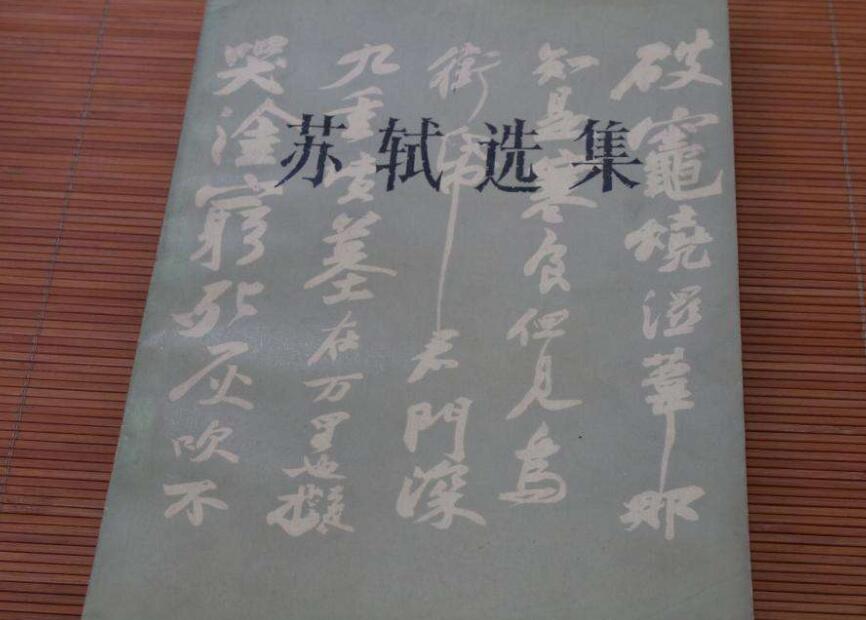 苏轼选集
破竈燒溼葦那
知是寒食但見烏
銜帋君門深
九重墳墓在万里也擬
哭塗窮死灰吹不